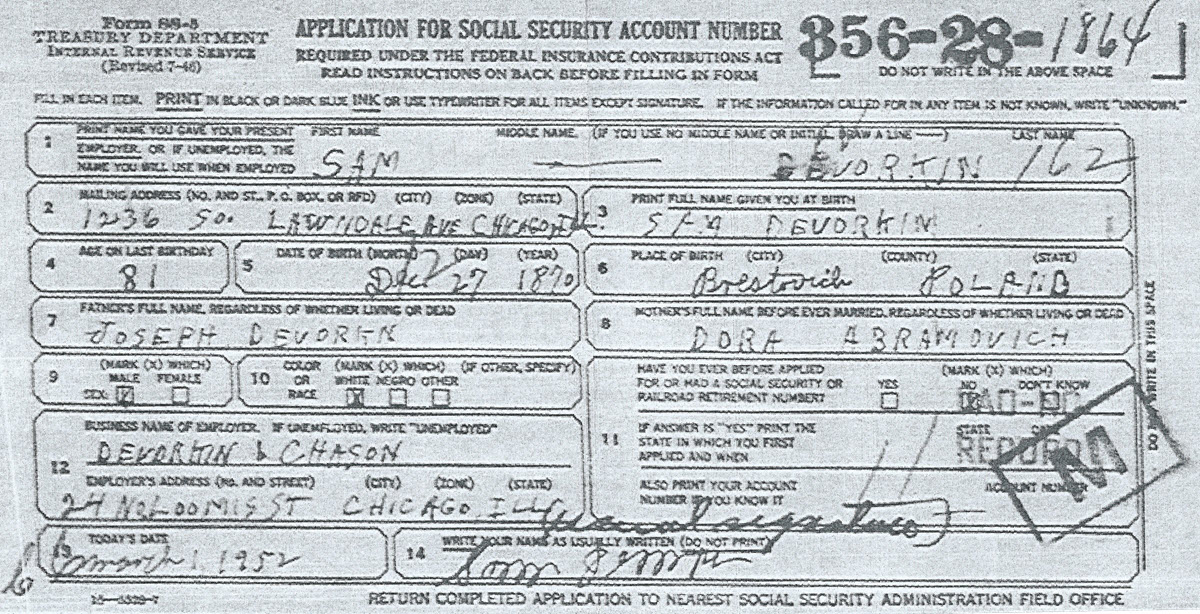 Form SS-5
TREASURY DEPARTMENT
INTERNAL REVENUE SERVICE
(Revised 7-46)
APPLICATION FOR SOCIAL SECURITY ACCOUNT NUMBER
REQUIRED UNDER THE FEDERAL INSURANCE CONTRIBUTIONS ACT
READ INSTRUCTIONS ON BACK BEFORE FILLING IN FORM
356-28-1864
DO NOT WRITE IN THE ABOVE SPACE
FILL IN EACH ITEM. PRINT IN BLACK OR DARK BLUE INK OR USE TYPEWRITER FOR ALL ITEMS EXCEPT SIGNATURE. IF THE INFORMATION CALLED FOR IN ANY ITEM IS NOT KNOWN, WRITE "UNKNOWN."
1 PRINT NAME YOU GAVE YOUR PRESENT EMPLOYER, OR IF UNEMPLOYED, THE NAME YOU WILL USE WHEN EMPLOYED
FIRST NAME MIDDLE NAME (IF YOU USE NO MIDDLE NAME OR INITIAL, DRAW A LINE —) LAST NAME
SAM — DEVORKIN 162
2 MAILING ADDRESS (NO. AND ST., P. O. BOX, OR RFD) (CITY) (ZONE) (STATE)
1236 So. LAWNDALE AVE CHICAGO ILL.
3 PRINT FULL NAME GIVEN YOU AT BIRTH
SAM DEVORKIN
4 AGE ON LAST BIRTHDAY
81
5 DATE OF BIRTH (MONTH) (DAY) (YEAR)
Dec 27 1870
6 PLACE OF BIRTH (CITY) (COUNTY) (STATE)
Brestovich POLAND
7 FATHER'S FULL NAME, REGARDLESS OF WHETHER LIVING OR DEAD
JOSEPH DEVORKN
8 MOTHER'S FULL NAME BEFORE EVER MARRIED, REGARDLESS OF WHETHER LIVING OR DEAD
DORA ABRAMOVICH
9 SEX: (MARK (X) WHICH) MALE FEMALE
X
10 COLOR OR RACE (MARK (X) WHICH) WHITE NEGRO OTHER (IF OTHER, SPECIFY)
X
11 HAVE YOU EVER BEFORE APPLIED FOR OR HAD A SOCIAL SECURITY OR RAILROAD RETIREMENT NUMBER?
(MARK (X) WHICH) YES NO DON'T KNOW
IF ANSWER IS "YES" PRINT THE STATE IN WHICH YOU FIRST APPLIED AND WHEN
STATE
ALSO PRINT YOUR ACCOUNT NUMBER IF YOU KNOW IT
ACCOUNT NUMBER
M
12 BUSINESS NAME OF EMPLOYER. IF UNEMPLOYED, WRITE "UNEMPLOYED"
DEVORKIN & CHASON
EMPLOYER'S ADDRESS (NO. AND STREET) (CITY) (ZONE) (STATE)
24 NO LOOMIS ST CHICAGO, ILL
(usual signature)
13 TODAY'S DATE
March 1, 1952
14 WRITE YOUR NAME AS USUALLY WRITTEN (DO NOT PRINT)
Sam
16—5529-7
RETURN COMPLETED APPLICATION TO NEAREST SOCIAL SECURITY ADMINISTRATION FIELD OFFICE
DO NOT WRITE IN THIS SPACE